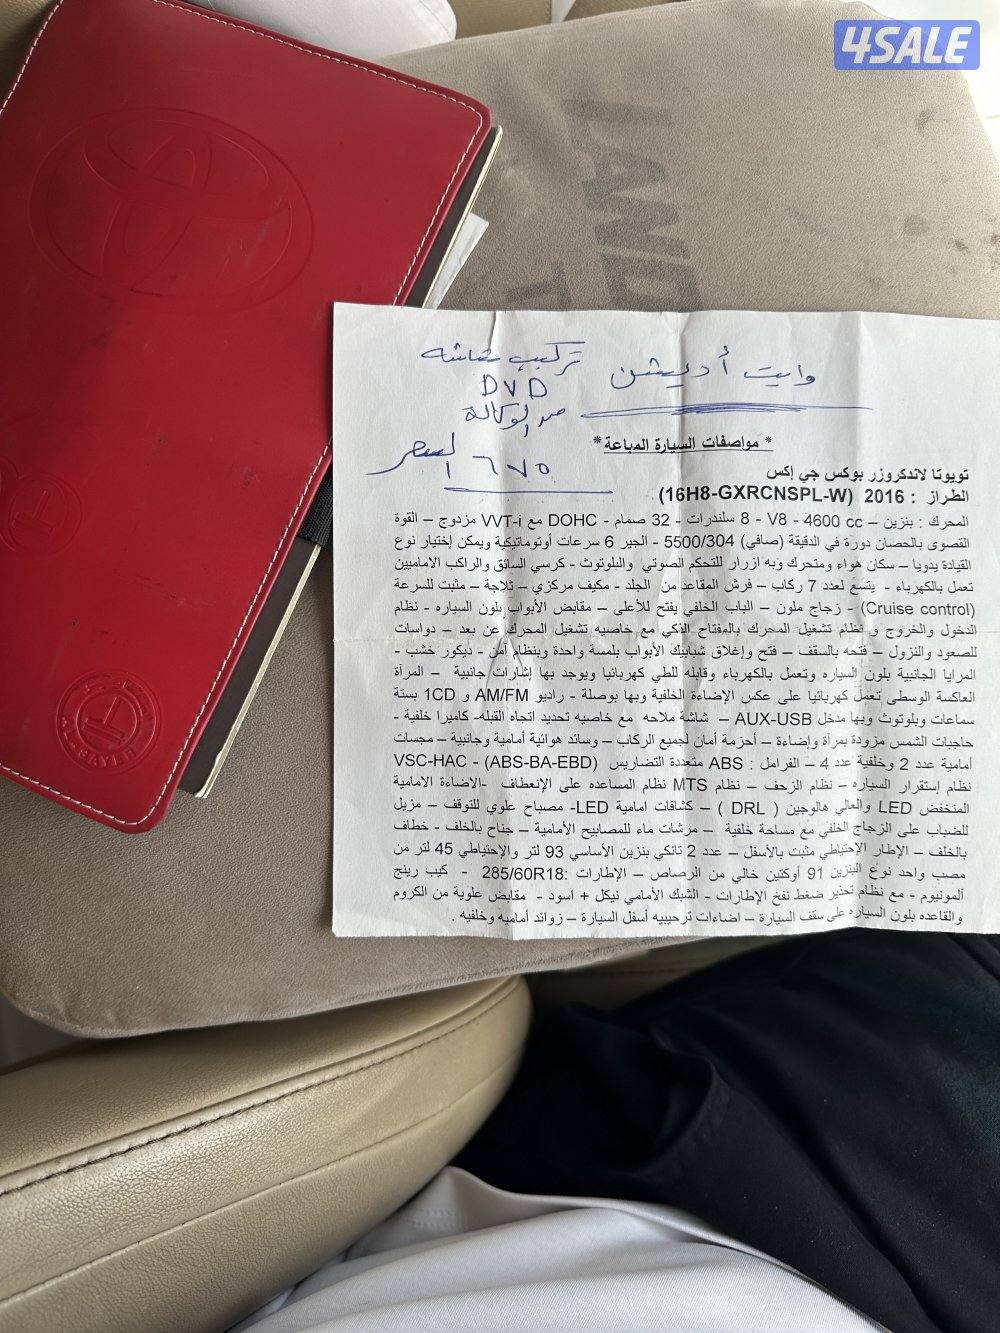 4SALE
LAND
AL-SAYER
وايت أديشن
تركيب شاشه
DVD
من الوكالة
السعر ٦٧٥٠
* مواصفات السيارة المباعة*
تويوتا لاندكروزر بوكس جي إكس
الطراز : 2016 (16H8-GXRCNSPL-W)
المحرك : بنزين – 4600 cc - V8 - 8 سلندرات - 32 صمام - DOHC مع VVT-i مزدوج – القوة
القصوى بالحصان دورة في الدقيقة (صافي) 5500/304 - الجير 6 سرعات أوتوماتيكية ويمكن إختيار نوع
القيادة يدويا – سكان هواء ومتحرك وبه ازرار للتحكم الصوتي والبلوتوث - كرسي السائق والراكب الاماميين
تعمل بالكهرباء - يتسع لعدد 7 ركاب – فرش المقاعد من الجلد - مكيف مركزي – ثلاجة – مثبت للسرعة
(Cruise control) - زجاج ملون – الباب الخلفي يفتح للأعلى – مقابض الأبواب بلون السياره - نظام
الدخول والخروج و نظام تشغيل المحرك بالمفتاح الذكي مع خاصيه تشغيل المحرك عن بعد – دواسات
للصعود والنزول – فتحه بالسقف – فتح وإغلاق شبابيك الأبواب بلمسة واحدة وبنظام أمن - ديكور خشب -
المرايا الجانبية بلون السياره وتعمل بالكهرباء وقابله للطي كهربائيا ويوجد بها إشارات جانبية – المرآة
العاكسة الوسطى تعمل كهربائيا على عكس الإضاءة الخلفية وبها بوصلة - راديو AM/FM و 1CD بستة
سماعات وبلوتوث وبها مدخل AUX-USB – شاشة ملاحه مع خاصيه تحديد اتجاه القبله- كاميرا خلفية -
حاجبات الشمس مزودة بمرآة وإضاءة – أحزمة أمان لجميع الركاب – وسائد هوائية أمامية وجانبية – مجسات
أمامية عدد 2 وخلفية عدد 4 – الفرامل : ABS متعددة التضاريس VSC-HAC - (ABS-BA-EBD)
نظام إستقرار السياره – نظام الزحف – نظام MTS نظام المساعده على الإنعطاف -الاضاءة الامامية
المنخفض LED والعالي هالوجين ( DRL ) – كشافات امامية LED- مصباح علوي للتوقف – مزيل
للضباب على الزجاج الخلفي مع مساحة خلفية – مرشات ماء للمصابيح الأمامية – جناح بالخلف - خطاف
بالخلف – الإطار الإحتياطي مثبت بالأسفل – عدد 2 تانكي بنزين الأساسي 93 لتر والإحتياطي 45 لتر من
مصب واحد نوع البنزين 91 أوكتين خالي من الرصاص – الإطارات :285/60R18 - كيب رينج
ألمونيوم - مع نظام تحذير ضغط نفخ الإطارات - الشبك الأمامي نيكل + اسود - مقابض علوية من الكروم
والقاعده بلون السياره على سقف السيارة – اضاءات ترحيبيه أسفل السيارة – زوائد أماميه وخلفيه .